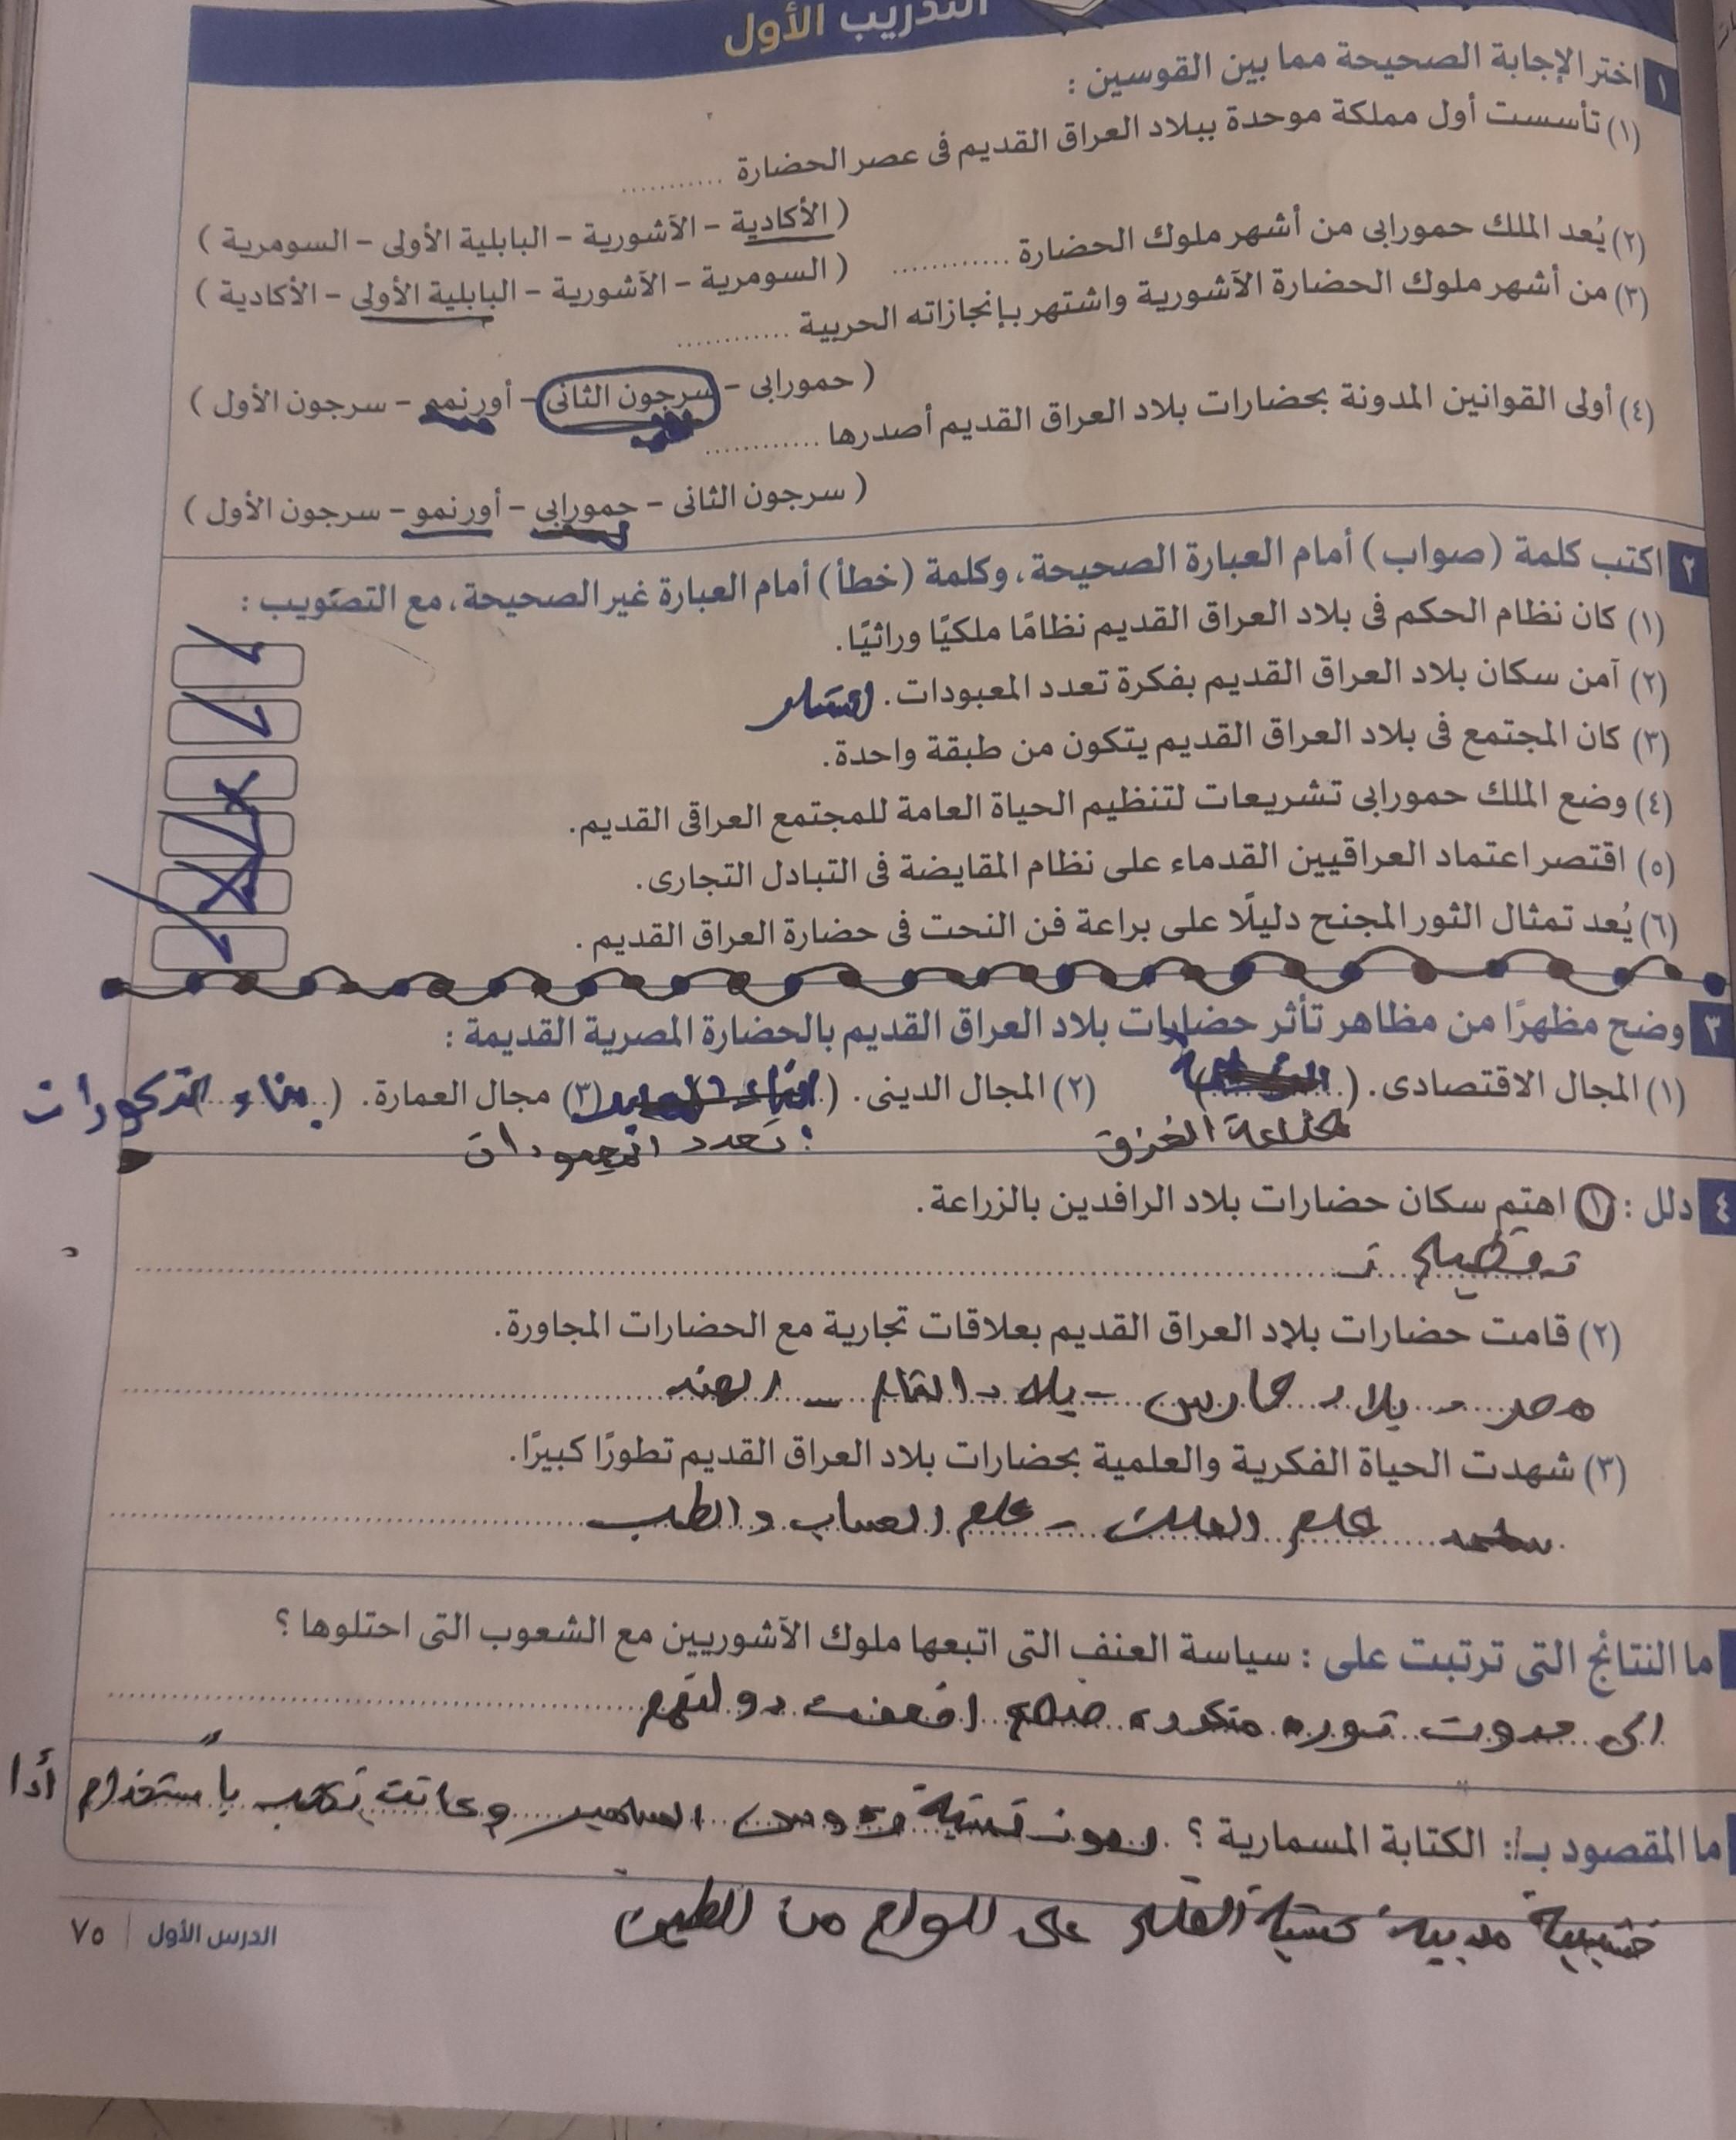 التدريب الأول
١ اختر الإجابة الصحيحة مما بين القوسين :
(١) تأسست أول مملكة موحدة ببلاد العراق القديم فى عصر الحضارة ...........
( الأكادية - الآشورية - البابلية الأولى - السومرية )
(٢) يُعد الملك حمورابى من أشهر ملوك الحضارة ............
( السومرية - الآشورية - البابلية الأولى - الأكادية )
(٣) من أشهر ملوك الحضارة الآشورية واشتهر بإنجازاته الحربية ............
( حمورابى - سرجون الثانى - أورنمو - سرجون الأول )
(٤) أولى القوانين المدونة بحضارات بلاد العراق القديم أصدرها ............
( سرجون الثانى - حمورابى - أورنمو - سرجون الأول )
٢ اكتب كلمة (صواب) أمام العبارة الصحيحة، وكلمة (خطأ) أمام العبارة غير الصحيحة، مع التصويب :
(١) كان نظام الحكم فى بلاد العراق القديم نظامًا ملكيًا وراثيًا.
(٢) آمن سكان بلاد العراق القديم بفكرة تعدد المعبودات.
(٣) كان المجتمع فى بلاد العراق القديم يتكون من طبقة واحدة.
(٤) وضع الملك حمورابى تشريعات لتنظيم الحياة العامة للمجتمع العراقى القديم.
(٥) اقتصر اعتماد العراقيين القدماء على نظام المقايضة فى التبادل التجارى.
(٦) يُعد تمثال الثور المجنح دليلًا على براعة فن النحت فى حضارة العراق القديم.
٣ وضح مظهرًا من مظاهر تأثر حضارات بلاد العراق القديم بالحضارة المصرية القديمة :
(١) المجال الاقتصادى. ( ) (٢) المجال الدينى. ( ) (٣) مجال العمارة. ( بناء )
الخزف تعدد
٤ دلل : (١) اهتم سكان حضارات بلاد الرافدين بالزراعة.
(٢) قامت حضارات بلاد العراق القديم بعلاقات تجارية مع الحضارات المجاورة.
مصر - بلاد فارس - بلاد الشام - الهند
(٣) شهدت الحياة الفكرية والعلمية بحضارات بلاد العراق القديم تطورًا كبيرًا.
علم الفلك - علم الحساب والطب
ما النتائج التى ترتبت على : سياسة العنف التى اتبعها ملوك الآشوريين مع الشعوب التى احتلوها ؟
الى متكرره ضدهم اضعفت دولتهم
ما المقصود بـ : الكتابة المسمارية ؟ رموز المسامير وكانت تكتب باستخدام أدا
خشبية مدببة على الواح من الطين
الدرس الأول | ٧٥